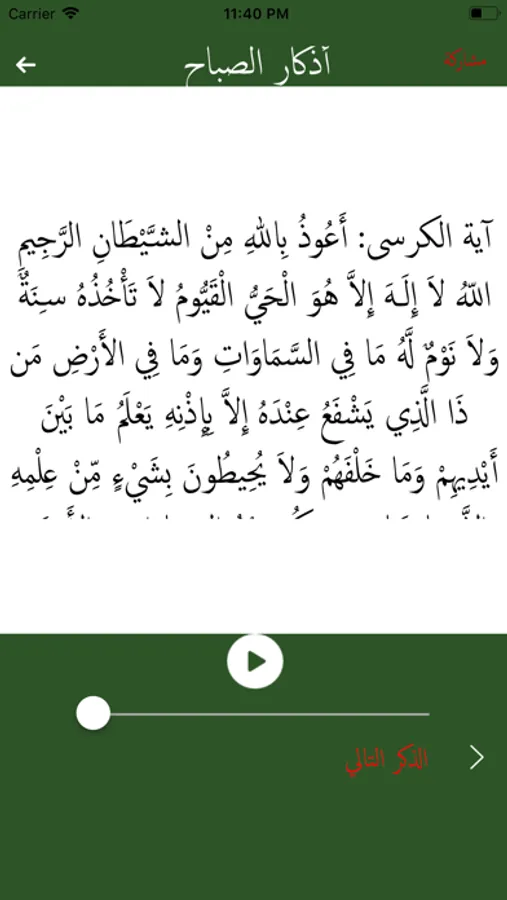 Carrier 11:40 PM
آذكار الصباح
مشاركة
آية الكرسى: أَعُوذُ بِاللهِ مِنْ الشَّيْطَانِ الرَّجِيمِ
اللّهُ لاَ إِلَـهَ إِلاَّ هُوَ الْحَيُّ الْقَيُّومُ لاَ تَأْخُذُهُ سِنَةٌ
وَلاَ نَوْمٌ لَّهُ مَا فِي السَّمَاوَاتِ وَمَا فِي الأَرْضِ مَن
ذَا الَّذِي يَشْفَعُ عِنْدَهُ إِلاَّ بِإِذْنِهِ يَعْلَمُ مَا بَيْنَ
أَيْدِيهِمْ وَمَا خَلْفَهُمْ وَلاَ يُحِيطُونَ بِشَيْءٍ مِّنْ عِلْمِهِ
الذكر التالي